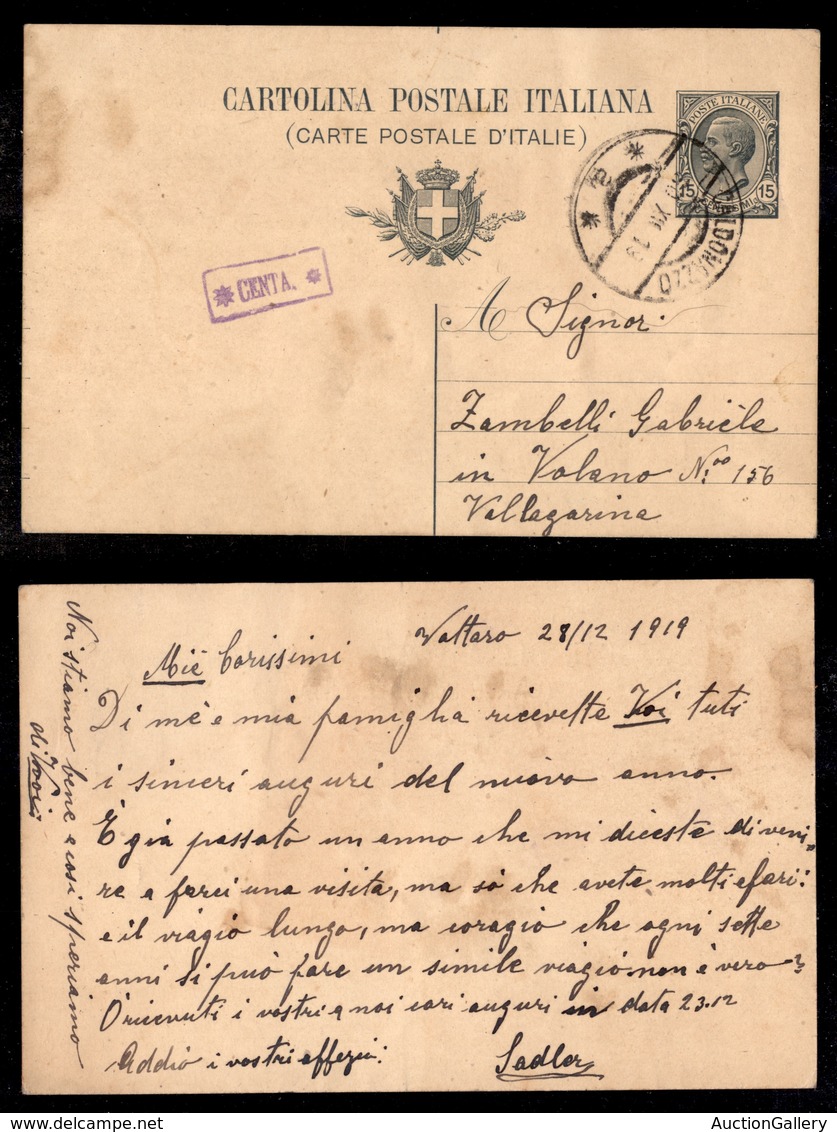 CARTOLINA POSTALE ITALIANA
(CARTE POSTALE D'ITALIE)
POSTE ITALIANE
15 15
CENTESIMI
CALDONAZZO
XII 19
* CENTA. *
A Signor.
Zambelli Gabrièle
in Volano N.oo 156
Vallagarina
Vattaro 28/12 1919
Miē Carissimi
Di mè e mia famiglia ricevette Voi tuti
i sinceri auguri del nuovo anno.
È già passato un anno che mi diceste di veni„
re a farci una visita, ma sò che avete molti afari:
e il viagio lungo, ma coragio che ogni sette
anni si può fare un simile viagio non è vero?
O ricevuti i vostri a noi cari auguri in data 23.12
Addio i vostri affezni:
Sadler
Noi stiamo bene e così speriamo
di Voi
AuctionGallery